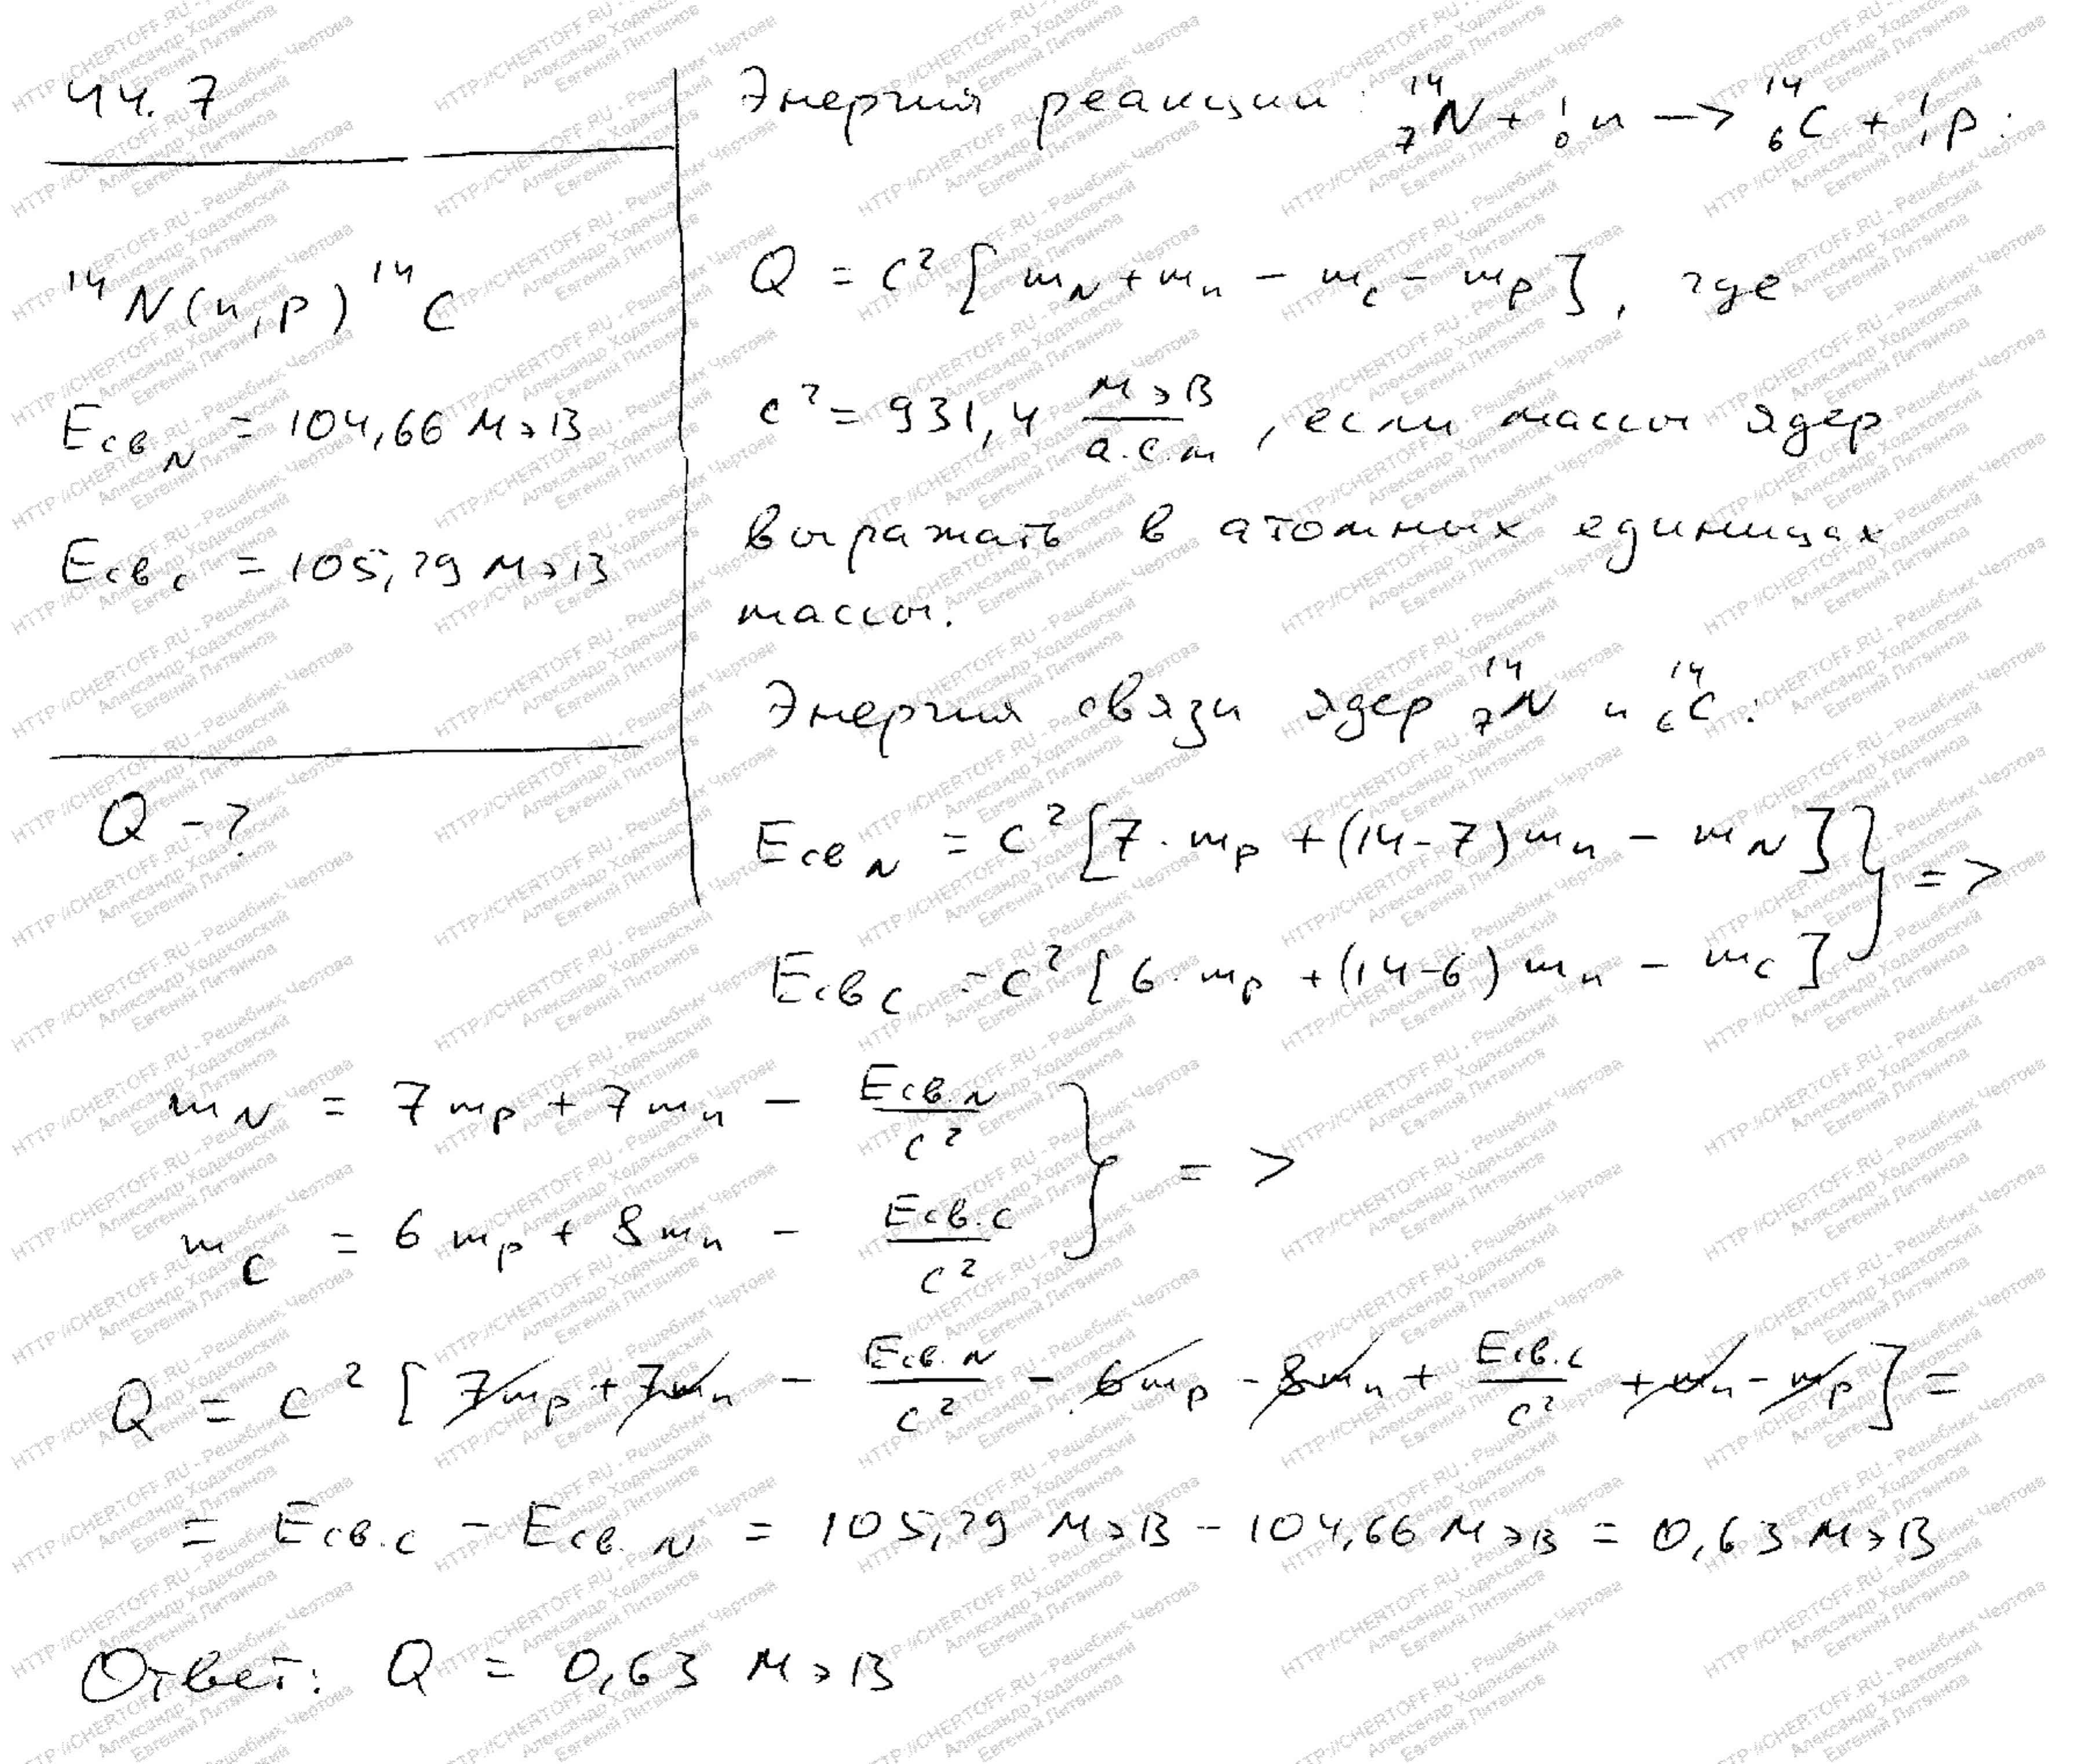 44.7
¹⁴N(n,p)¹⁴C
Eсв N = 104,66 МэВ
Eсв C = 105,29 МэВ
Q - ?
Энергия реакции: ¹⁴₇N + ¹₀n —> ¹⁴₆C + ¹₁p:
Q = c² [ m_N + m_n - m_C - m_p ], где
c² = 931,4 МэВ/а.е.м, если массы ядер
выражать в атомных единицах
массы.
Энергия связи ядер ¹⁴₇N и ¹⁴₆C:
Eсв N = c² [7·m_p + (14-7)m_n - m_N] } =>
Eсв C = c² [6·m_p + (14-6)m_n - m_C]
m_N = 7m_p + 7m_n - Eсв.N/c² } =>
m_C = 6m_p + 8m_n - Eсв.C/c²
Q = c² [7m_p + 7m_n - Eсв.N/c² - 6m_p - 8m_n + Eсв.C/c² + m_n - m_p] =
= Eсв.C - Eсв.N = 105,29 МэВ - 104,66 МэВ = 0,63 МэВ
Ответ: Q = 0,63 МэВ
HTTP://CHERTOFF.RU - Решебник Чертова
Александр Ходаковский
Евгений Литвинов